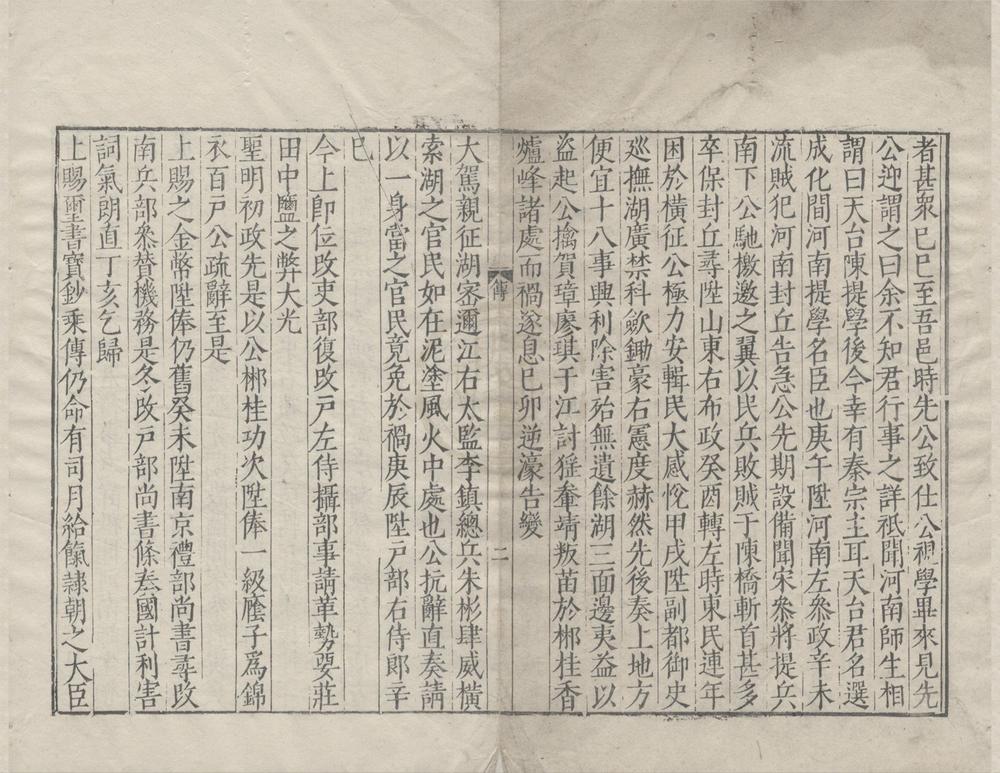 者甚衆己巳至吾邑時先公致仕公視學畢來見先
公迎謂之曰余不知君行事之詳祗聞河南師生相
謂曰天台陳提學後今幸有秦宗主耳天台君名選
成化間河南提學名臣也庚午陞河南左叅政辛未
流賊犯河南封丘告急公先期設備聞宋叅將提兵
南下公馳檄邀之翼以民兵敗賊于陳橋斬首甚多
卒保封丘尋陞山東右布政癸酉轉左時東民連年
困於橫征公極力安輯民大感悅甲戌陞副都御史
廵撫湖廣禁科歛鋤豪右憲度赫然先後奏上地方
便宜十八事興利除害殆無遺餘湖三面邊夷益以
盜起公擒賀璋廖琪于江討猺奉靖叛苗於郴桂香
爐峰諸處而禍遂息己卯逆濠告變
傳
二
大駕親征湖密邇江右太監李鎮總兵朱彬肆威橫
索湖之官民如在泥塗風火中處也公抗辭直奏請
以一身當之官民竟免於禍庚辰陞戸部右侍郎辛
巳
今上卽位改吏部復改戸左侍攝部事請革勢要莊
田中鹽之弊大光
聖明初政先是以公郴桂功次陞俸一級廕子爲錦
衣百戸公疏辭至是
上賜之金幣陞俸仍舊癸未陞南京禮部尚書尋改
南兵部叅替機務是冬改戸部尚書條奏國計利害
詞氣朗直丁亥乞歸
上賜璽書寶鈔乘傳仍命有司月給餼隷朝之大臣